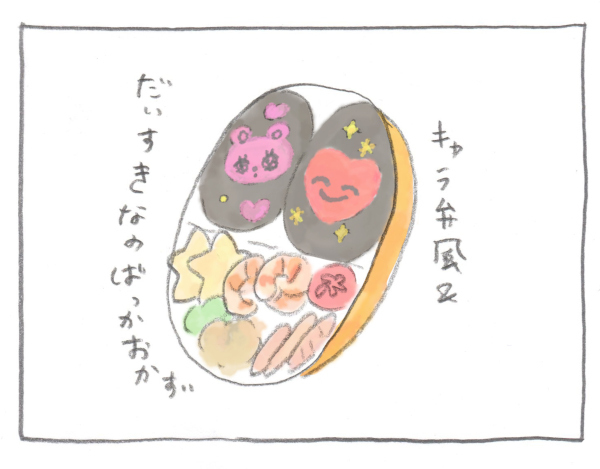 キャラ弁風と
だいすきなのばっかおかず